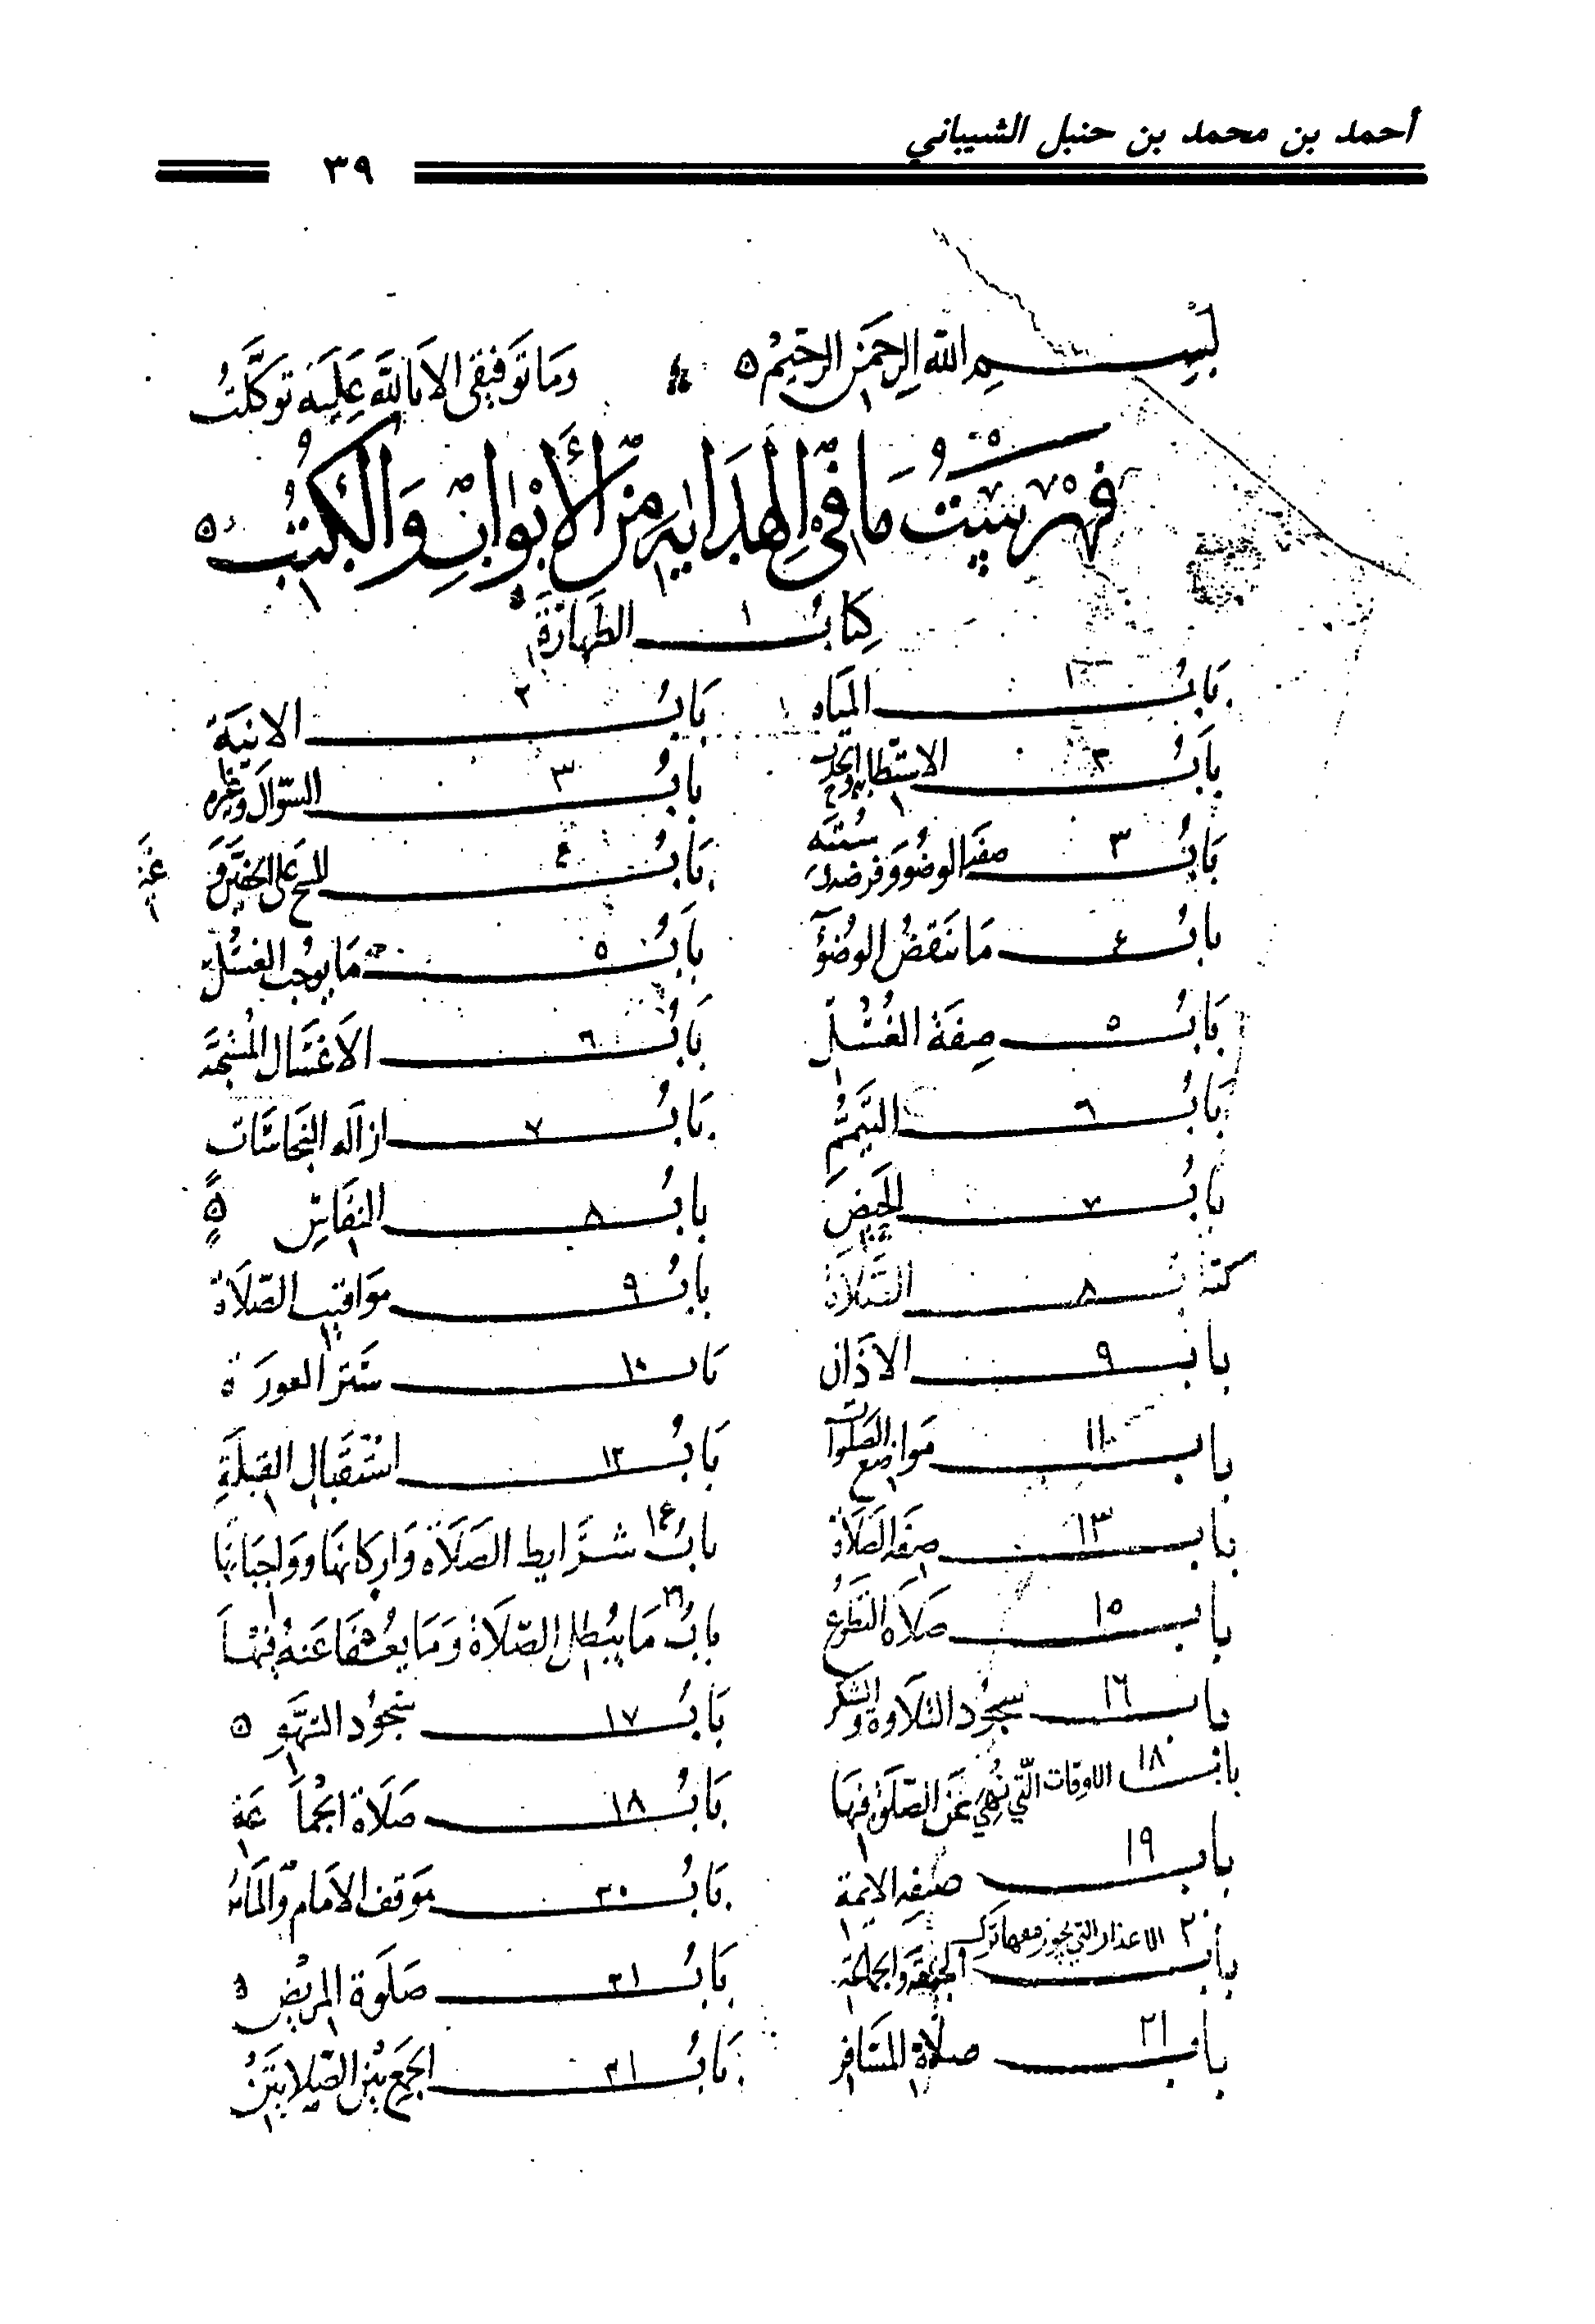 أحمد بن محمد بن حنبل الشيباني
٣٩
بسم الله الرحمن الرحيم ه وما توفيقي الا بالله عليه توكلت
فهرست ما في الهداية من الأبواب والكتب ه
كتاب ١ الطهارة
باب ١ المياه باب ٢ الانية
باب ٢ الاستطابة والحدث باب ٣ السواك وغيره
باب ٣ صفة الوضوء وفرضه وسننه باب ٤ المسح على الخفين وغيره
باب ٤ ما ينقض الوضوء باب ٥ ما يوجب الغسل
باب ٥ صفة الغسل باب ٦ الاغسال المستحبة
باب ٦ التيمم باب ٧ ازالة النجاسات
باب ٧ الحيض باب ٨ النفاس ه
كتاب ٨ الصلاة باب ٩ مواقيت الصلاة
باب ٩ الاذان باب ١٠ ستر العورة
باب ١١ مواضع الصلوات باب ١٢ استقبال القبلة
باب ١٣ صفة الصلاة باب ١٤ شرايط الصلاة واركانها وواجباتها
باب ١٥ صلاة التطوع باب ٢٦ ما يبطل الصلاة وما يعفا عنه فيها
باب ١٦ سجود التلاوة والشكر باب ١٧ سجود السهو ه
باب ١٨ الاوقات التي نهي عن الصلوة فيها باب ١٨ صلاة الجماعة
باب ١٩ صفة الائمة باب ٢٠ موقف الامام والمأموم
باب ٢٠ الاعذار التي يجوز معها ترك الجمعة والجماعة باب ٢١ صلوة المريض ه
باب ٢١ صلاة المسافر باب ٢١ الجمع بين الصلاتين